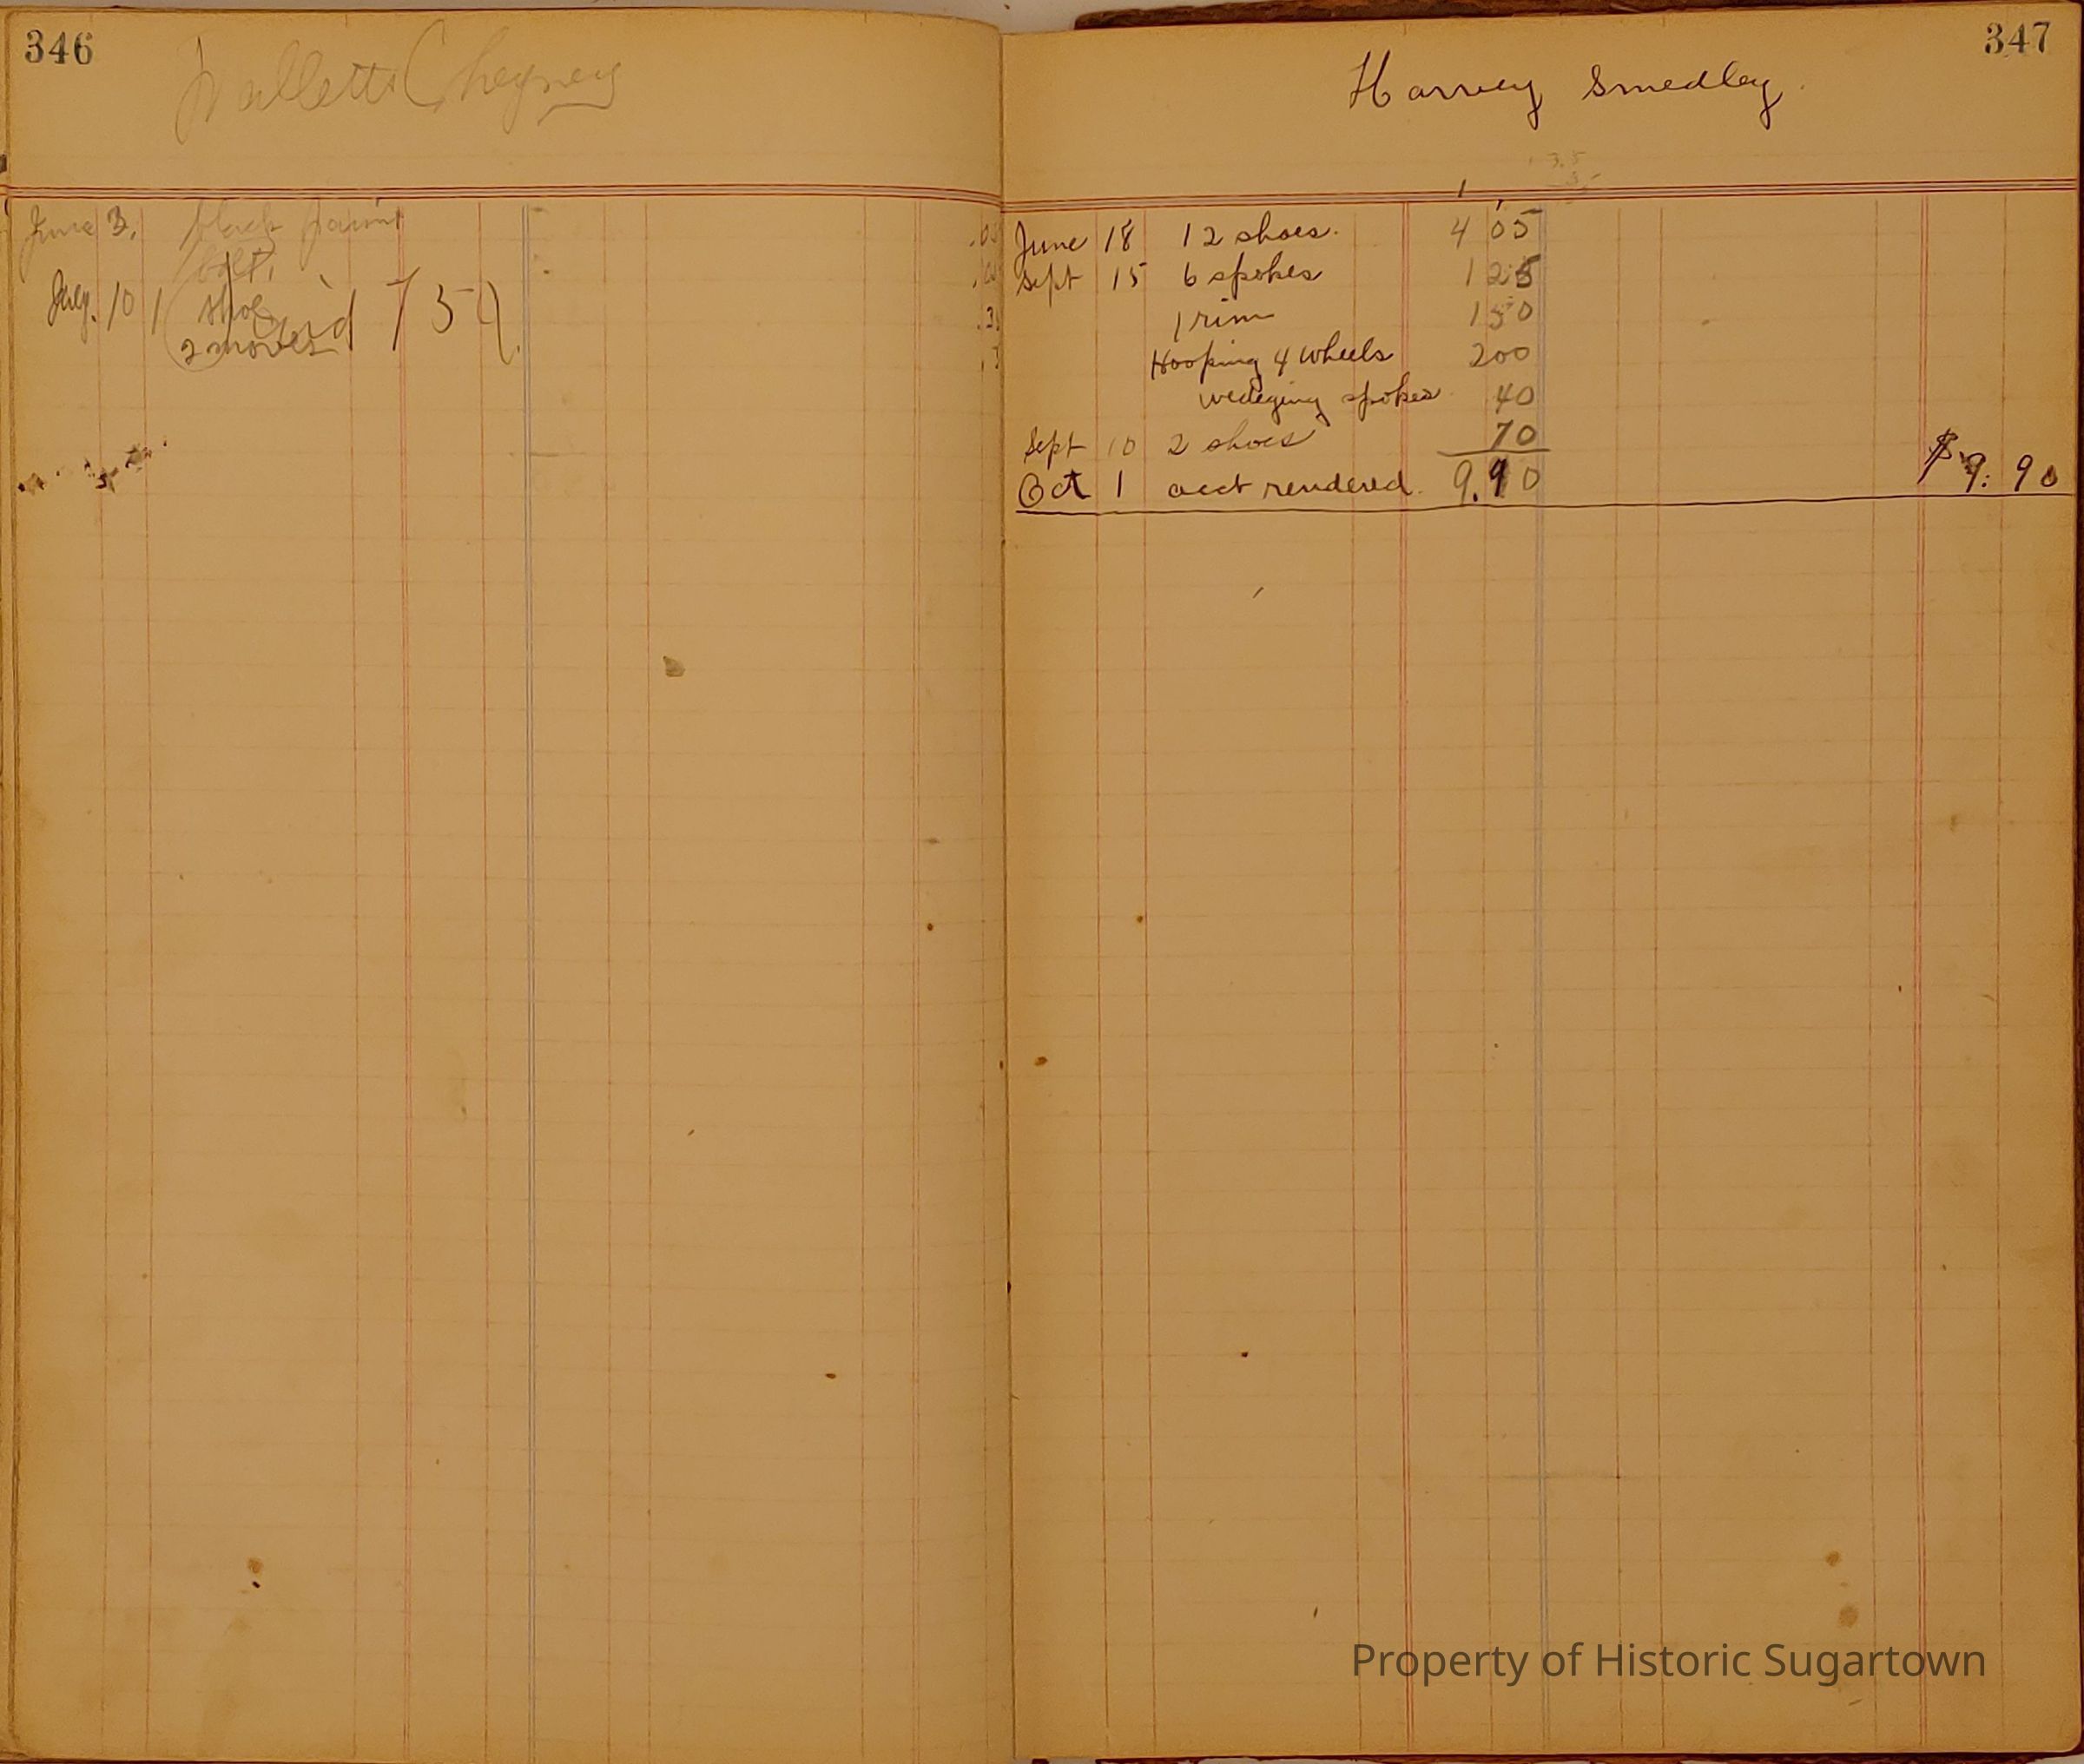 346
Wallett Cheyney
June 3, black paint .05
bolt,
Aug. 10 1 shoe
2 moves
347
Harvey Smedley.
June 18 12 shoes. 4 05
Sept 15 6 spokes 1 25
1 rim 1 50
Hooping 4 wheels 200
wedging spokes 40
Sept 10 2 shoes 70
Oct 1 acct rendered. 9.90 $9.90
Property of Historic Sugartown